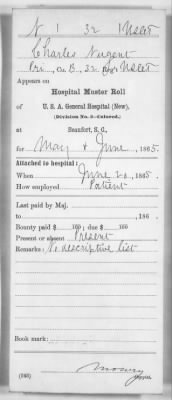 N | 32 | U.S.C.T.
Charles Nugent
Pri, Co. B, 32 Reg't U.S.C.T.
Appears on
Hospital Muster Roll
of
U. S. A. General Hospital (New),
(Division No. 2—Colored,)
at
Beaufort, S. C.,
for May & June, 1865.
Attached to hospital:
When June 20, 1865.
How employed Patient
Last paid by Maj.
to , 186 .
Bounty paid $ 100; due $ 100
Present or absent Present
Remarks: No descriptive list
Book mark:
(343)
Mowry
Copyist.